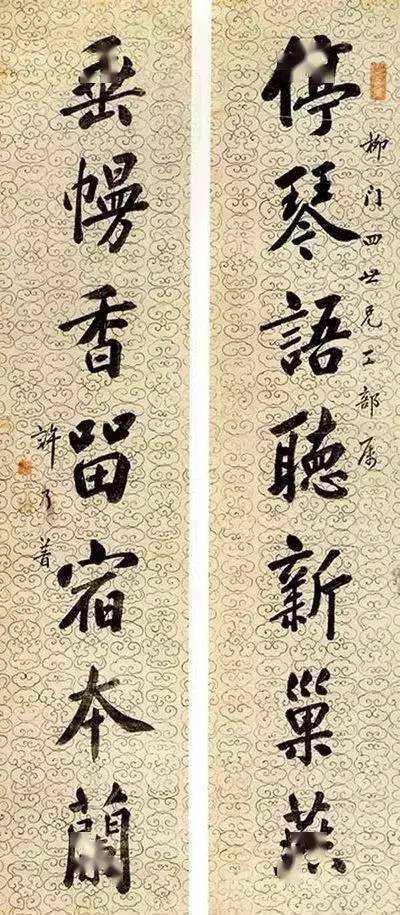 柳門四世兄工部属
停琴語聽新巢燕
垂幔香留宿本蘭
許乃普